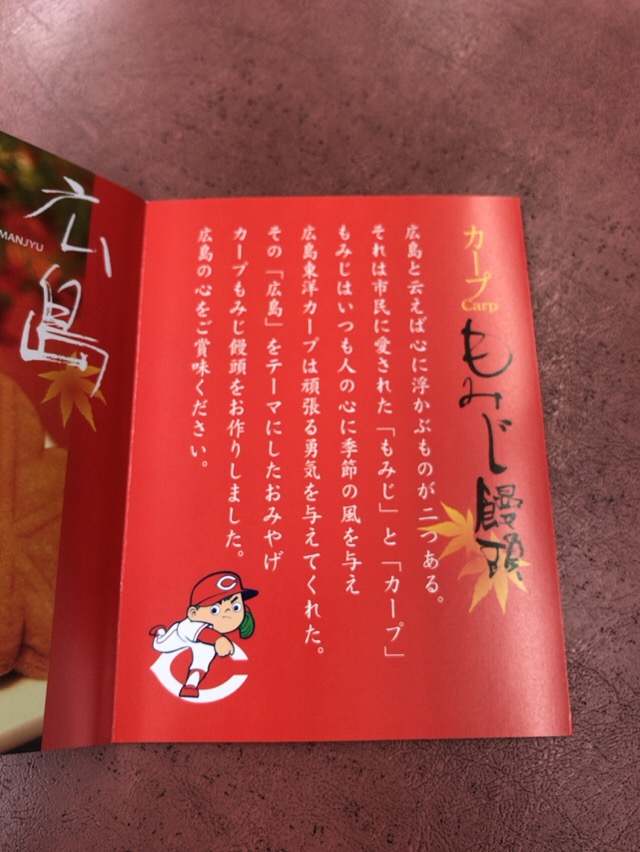 広島
MANJYU
カープ
Carp
もみじ饅頭
広島と云えば心に浮かぶものが二つある。
それは市民に愛された「もみじ」と「カープ」
もみじはいつも人の心に季節の風を与え
広島東洋カープは頑張る勇気を与えてくれた。
その「広島」をテーマにしたおみやげ
カープもみじ饅頭をお作りしました。
広島の心をご賞味ください。
C
C